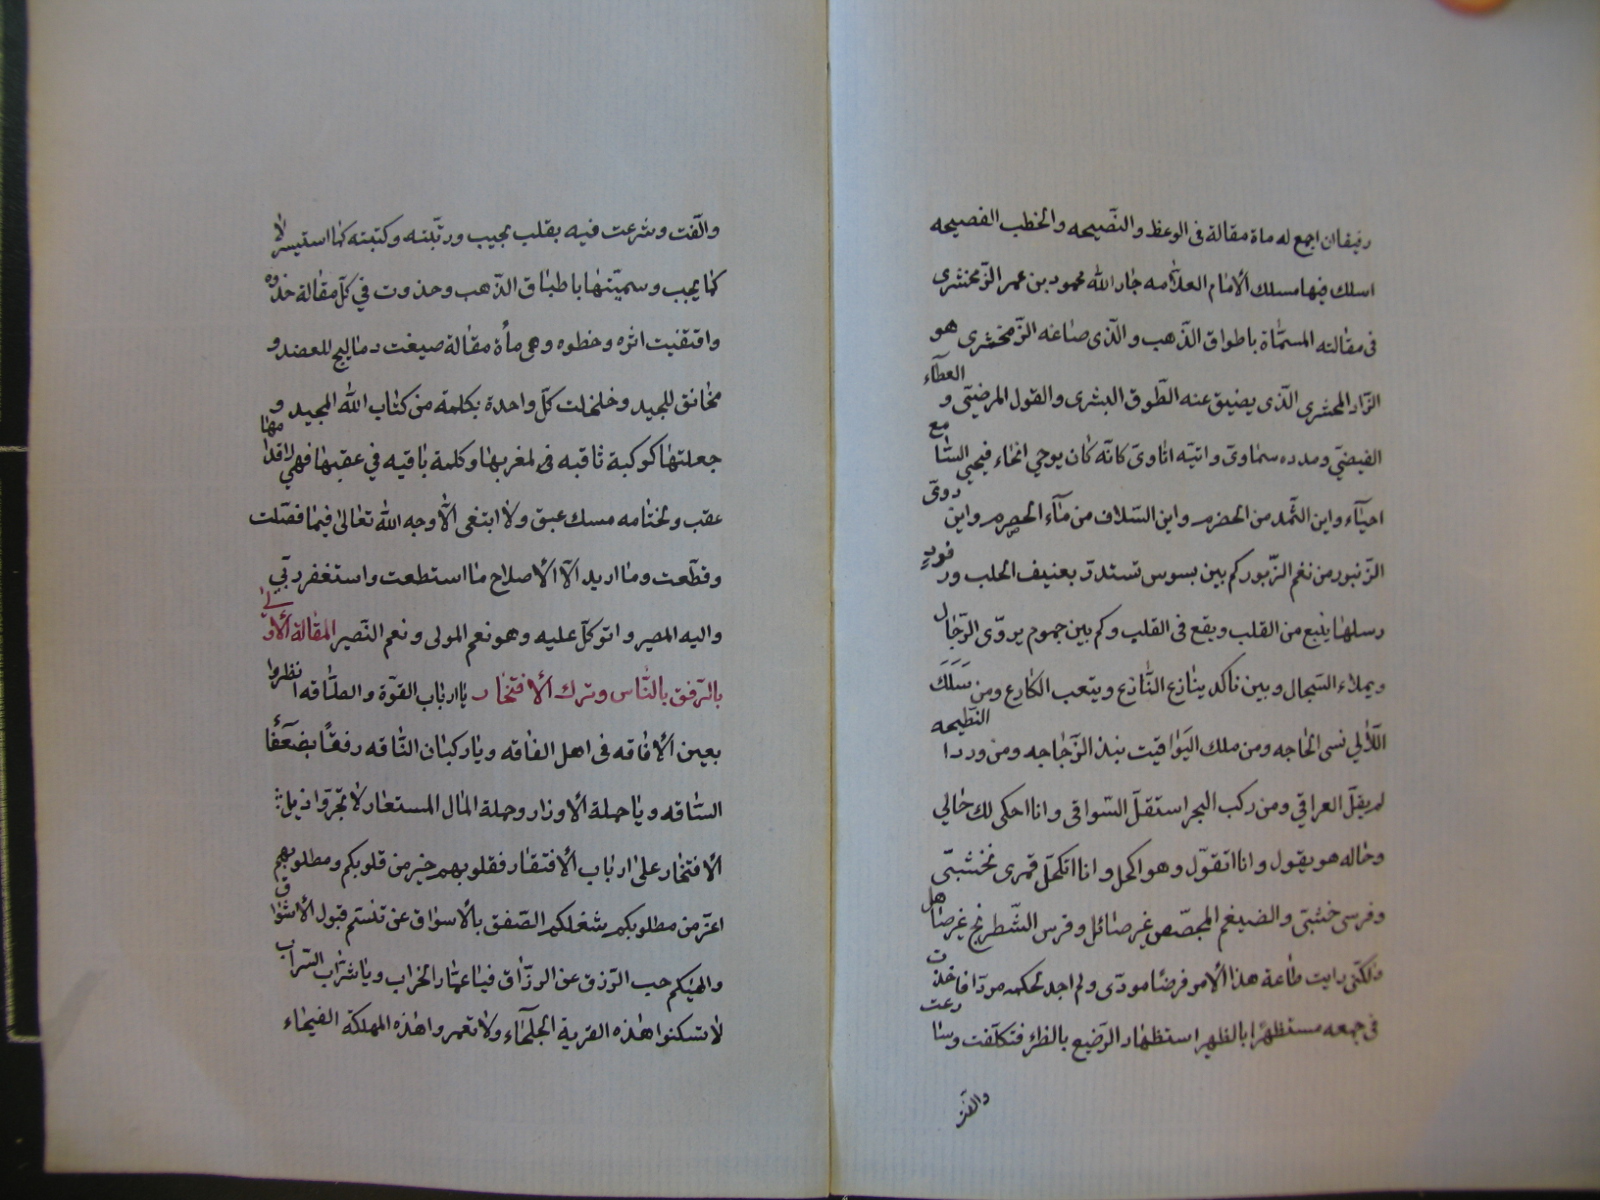 رفيقان اجمع له ماة مقالة فى الوعظ والنّصيحه والخطب الفصيحه
اسلك فيها مسلك الأمام العلاّمه جار الله محمود بن عمر الزّمخشرى
فى مقالته المسمّاة باطواق الذّهب والّذى صاغه الزّمخشرى هو
الزّاد المحشرى الّذى يضيق عنه الطّوق البشرى والقول المرضيّ و العطآء
الفيضيّ ومدده سماوىّ واتيّه اتاوىّ كانّه كان يوحي انحاء فيحيى
احيآء واين الثّمد من الخضرم واين السّلاف من مآء الحصرم واين دوىّ
الزّنبور من نغم الزّبور كم بين بسوس تستدرّ بعنيف الحلب و
رسلها ينبع من القلب ويقع فى القلب وكم بين جموم يروّى الرّجال
ويملاء السّجال وبين ناكد ينازع النّازع ويتعب الكارع ومن سلك
اللّألي نسى الحاجه ومن ملك اليواقيت نبذ الزّجاجه ومن ورد
لم يقل العراقي ومن ركب البحر استقلّ السّواقى وانا احكى لك حالي
وحاله هو يقول وانا اتقوّل وهو اكحل وانا اتكحّل قمرى نخشبىّ
وفرسى خشبىّ والضيغم المجصّص غير صائل وفرس الشّطرنج غير صاهل
فلكنّى رايت طاعة هذا الأمر فرضًا مودّى ولم اجد لحكمه مردّا فاخذت
فى جمعه مستظهرًا بالظهير استظهار الرّضيع بالظئر فتكلّفت وسارعت
والّفت
والّفت وشرعت فيه بقلب يجيب ورتّبته وكتبته كما استيسر لا
كما يجب وسميّتها باطباق الذّهب وحذوت في كلّ مقالة حذوه
واقتفيت اثره وخطوه وهى مأة مقالة صيغت دماليج للعضد و
مخانق للجيد وخلخلت كلّ واحدة بكلمة من كتاب الله المجيد و
جعلتها كوكبة ثاقبه فى مغربها وكلمة باقيه في عقبها فهي
عقب ولختامه مسك عبق ولا ابتغى الّا وجه الله تعالى فيما فصّلت
وقطّعت وما اريد الّا الأصلاح ما استطعت واستغفر ربّي
واليه المصير واتوكّل عليه وهو نعم المولى ونعم النّصير المقالة الأولى
بالرّفق بالنّاس وترك الأفتخار يا ارباب القوّة والطّاقه انظروا
بعين الأفاقه فى اهل الفاقه ويا ركبان النّاقه رفقًا بضعفآء
السّاقه ويا حملة الأوزار وحملة المال المستعار لا تجرّوا ذيل
الأفتخار على ارباب الأفتقار فقلوبهم خير من قلوبكم ومطلوبهم
اعزّ من مطلوبكم شغلكم الصّفق بالأسواق عن تنسّم قبول الأشواق
والهيكم حب الرّزق عن الرزّاق فيا عمّار الخراب ويا شرّاب السّراب
لا تسكنوا هذه القرية الجلحاء ولا تعمروا هذه المهلكة الفيحاء